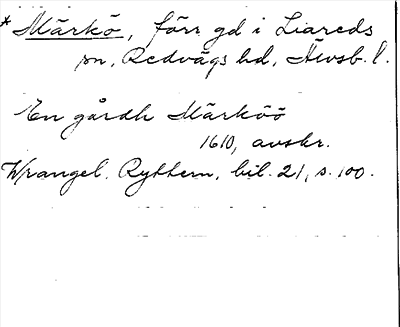 * Märkö, förr gd i Liareds
sn, Redvägs hd, Älvsb. l.
En gårdh Märköö
1610, avskr.
Wrangel, Ryttern, bil. 21, s. 100.